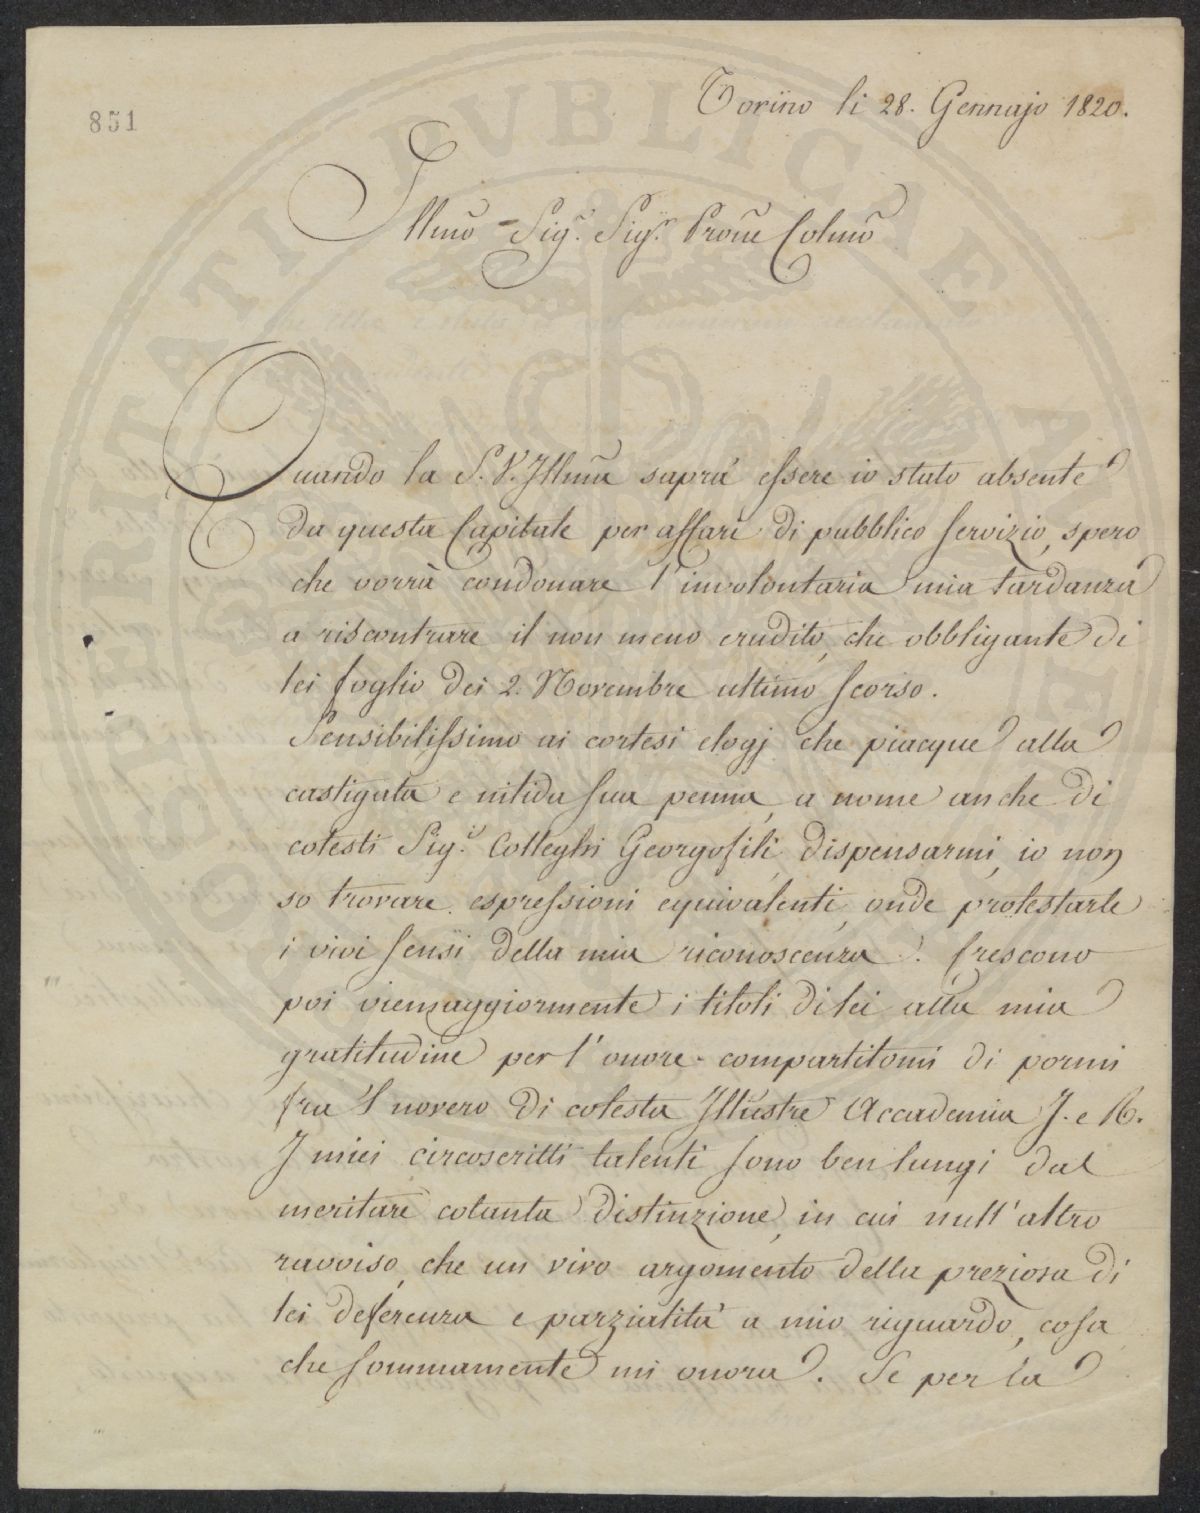 851
Torino li 28. Gennajo 1820.
Illmo Sigr. Sigr. Prone Colmo
Quando la S. V. Illma saprà essere io stato absente
da questa Capitale per affari di pubblico servizio, spero
che vorrà condonare l'involontaria mia tardanza
a riscontrare il non meno erudito, che obbligante di
lei foglio dei 2. Novembre ultimo scorso.
Sensibilissimo ai cortesi elogj che piacque alla
castigata e nitida sua penna, a nome anche di
cotesti Sigi. Colleghi Georgofili, dispensarmi, io non
so trovare espressioni equivalenti, onde protestarle
i vivi sensi della mia riconoscenza. Crescono
poi viemaggiormente i titoli di lei alla mia
gratitudine per l'onore compartitomi di pormi
fra 'l novero di cotesta Illustre Accademia I. e R.
I miei circoscritti talenti sono ben lungi dal
meritare cotanta distinzione, in cui null'altro
ravviso, che un vivo argomento della preziosa di
lei deferenza e parzialità a mio riguardo, cosa
che sommamente mi onora. Se per la
PUBLICAE